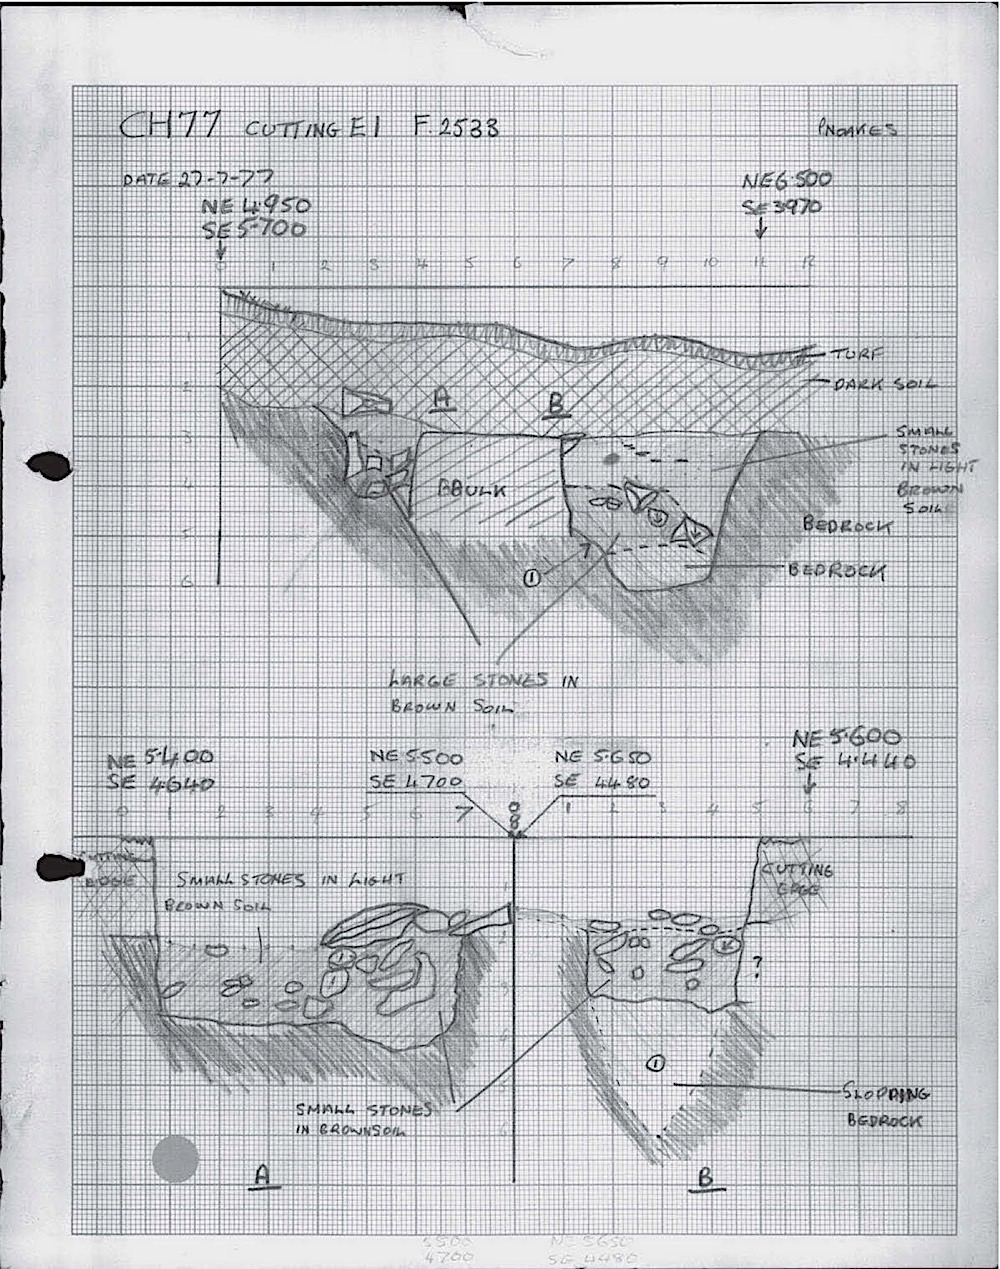 CH77 CUTTING E1 F.2533
PNOAKES
DATE 27-7-77
NE 4.950
SE 5.700
NE6.500
SE 3970
0 1 2 3 4 5 6 7 8 9 10 11 12
1
2
3
4
5
6
TURF
DARK SOIL
A
B
SMALL
STONES
IN LIGHT
BROWN
SOIL
BBULK
BEDROCK
BEDROCK
1
LARGE STONES IN
BROWN SOIL
NE 5.400
SE 4640
NE 5.500
SE 4700
NE 5.650
SE 4480
NE 5.600
SE 4.440
0 1 2 3 4 5 6 7 8
0 1 2 3 4 5 6 7 8
CUTTING
EDGE
SMALL STONES IN LIGHT
BROWN SOIL
CUTTING
EDGE
?
1
SMALL STONES
IN BROWNSOIL
SLOPPING
BEDROCK
A
B
5500
4700
NE 5650
SE 4480